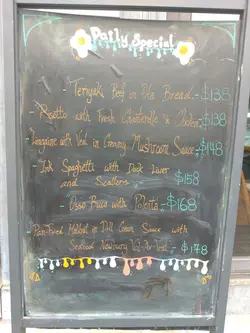 Daily Special
- Teriyaki Beef in Pita Bread - $138
- Risotto with Fresh Chanterelle & Chorizo - $138
- Linguine with Veal in Creamy Mushroom Sauce - $148
- Ink Spaghetti with Duck Liver
and Scallops - $158
- Osso Bucco with Polenta - $168
- Pan-Fried Halibut in Dill Cream Sauce with
Seafood Newburg - $178